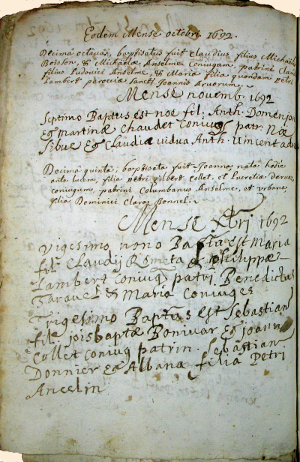 Eodem Mense octobri 1692.
Decima octava, baptisatus fuit Claudius filius Michaelis
Boiston, & Michaelæ Anselme Coniugum, patrini Claudius
filius Ludovici Anselme, & Maria filia quondam
Lambert parochiæ Sancti Joannis
Mense novemb. 1692
Septimo Baptus est noe fil. Anth. Domenje
Eg martinæ Chaudet Coniug patr. Noe
Sibue Eg Claudia vidua Anth. Vincent
Decima quinta, baptisata fuit Joanna nata hodie
filia petri Vibert Collet, et Lucretiæ
coniugum, patrini Columbanus Anselme, et urbana
filia Dominici Claraz Bonnel.
Mense Xbri 1692
Vigesimo nono Bapta est Maria
fil. Claudij Rometa Eg philippæ
Lambert Coniug patri Benedictus
Baravel & Maria Coniuges
Trigesimo Baptus est Sebastian
fil. jois baptæ Bonivar Eg joan
Collet coniug patrin. Sebastian
Donnier Eg Albana filia petri
Ancelin